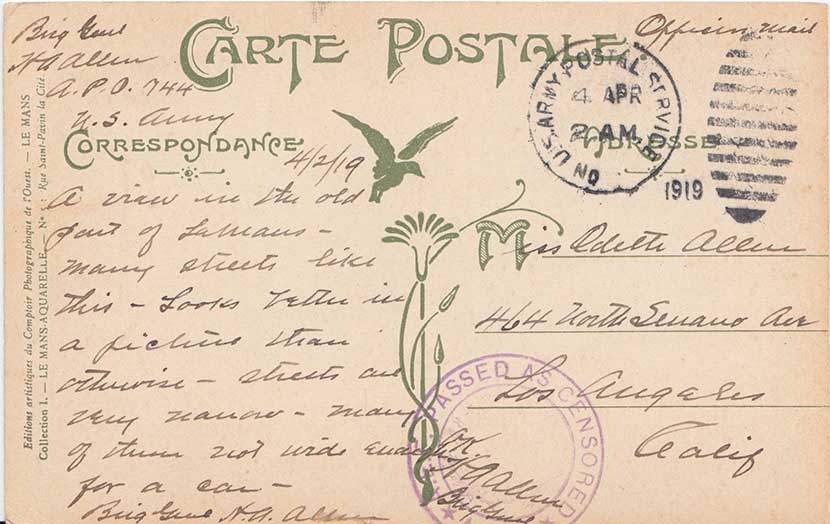 Brig Genl
HA Allen
A.P.O. 744
U.S. Army
CARTE POSTALE
Officers Mail
ON U.S. ARMY POSTAL SERVICE
4 APR
2 AM
1919
CORRESPONDANCE
ADRESSE
4/2/19
A view in the old
part of LeMans -
many streets like
this - Looks better in
a picture than
otherwise - streets are
very narrow - many
of them not wide enough
for a car -
Brig Genl H.A. Allen
Miss Odette Allen
464 North Serrano Ave
Los Angeles
Calif
PASSED AS CENSORED
OK
HA Allen
Brig Genl
Editions artistiques du Comptoir Photographique de l'Ouest. — LE MANS
Collection I. — LE MANS-AQUARELLE. — N° : Rue Saint-Pavin la Cité